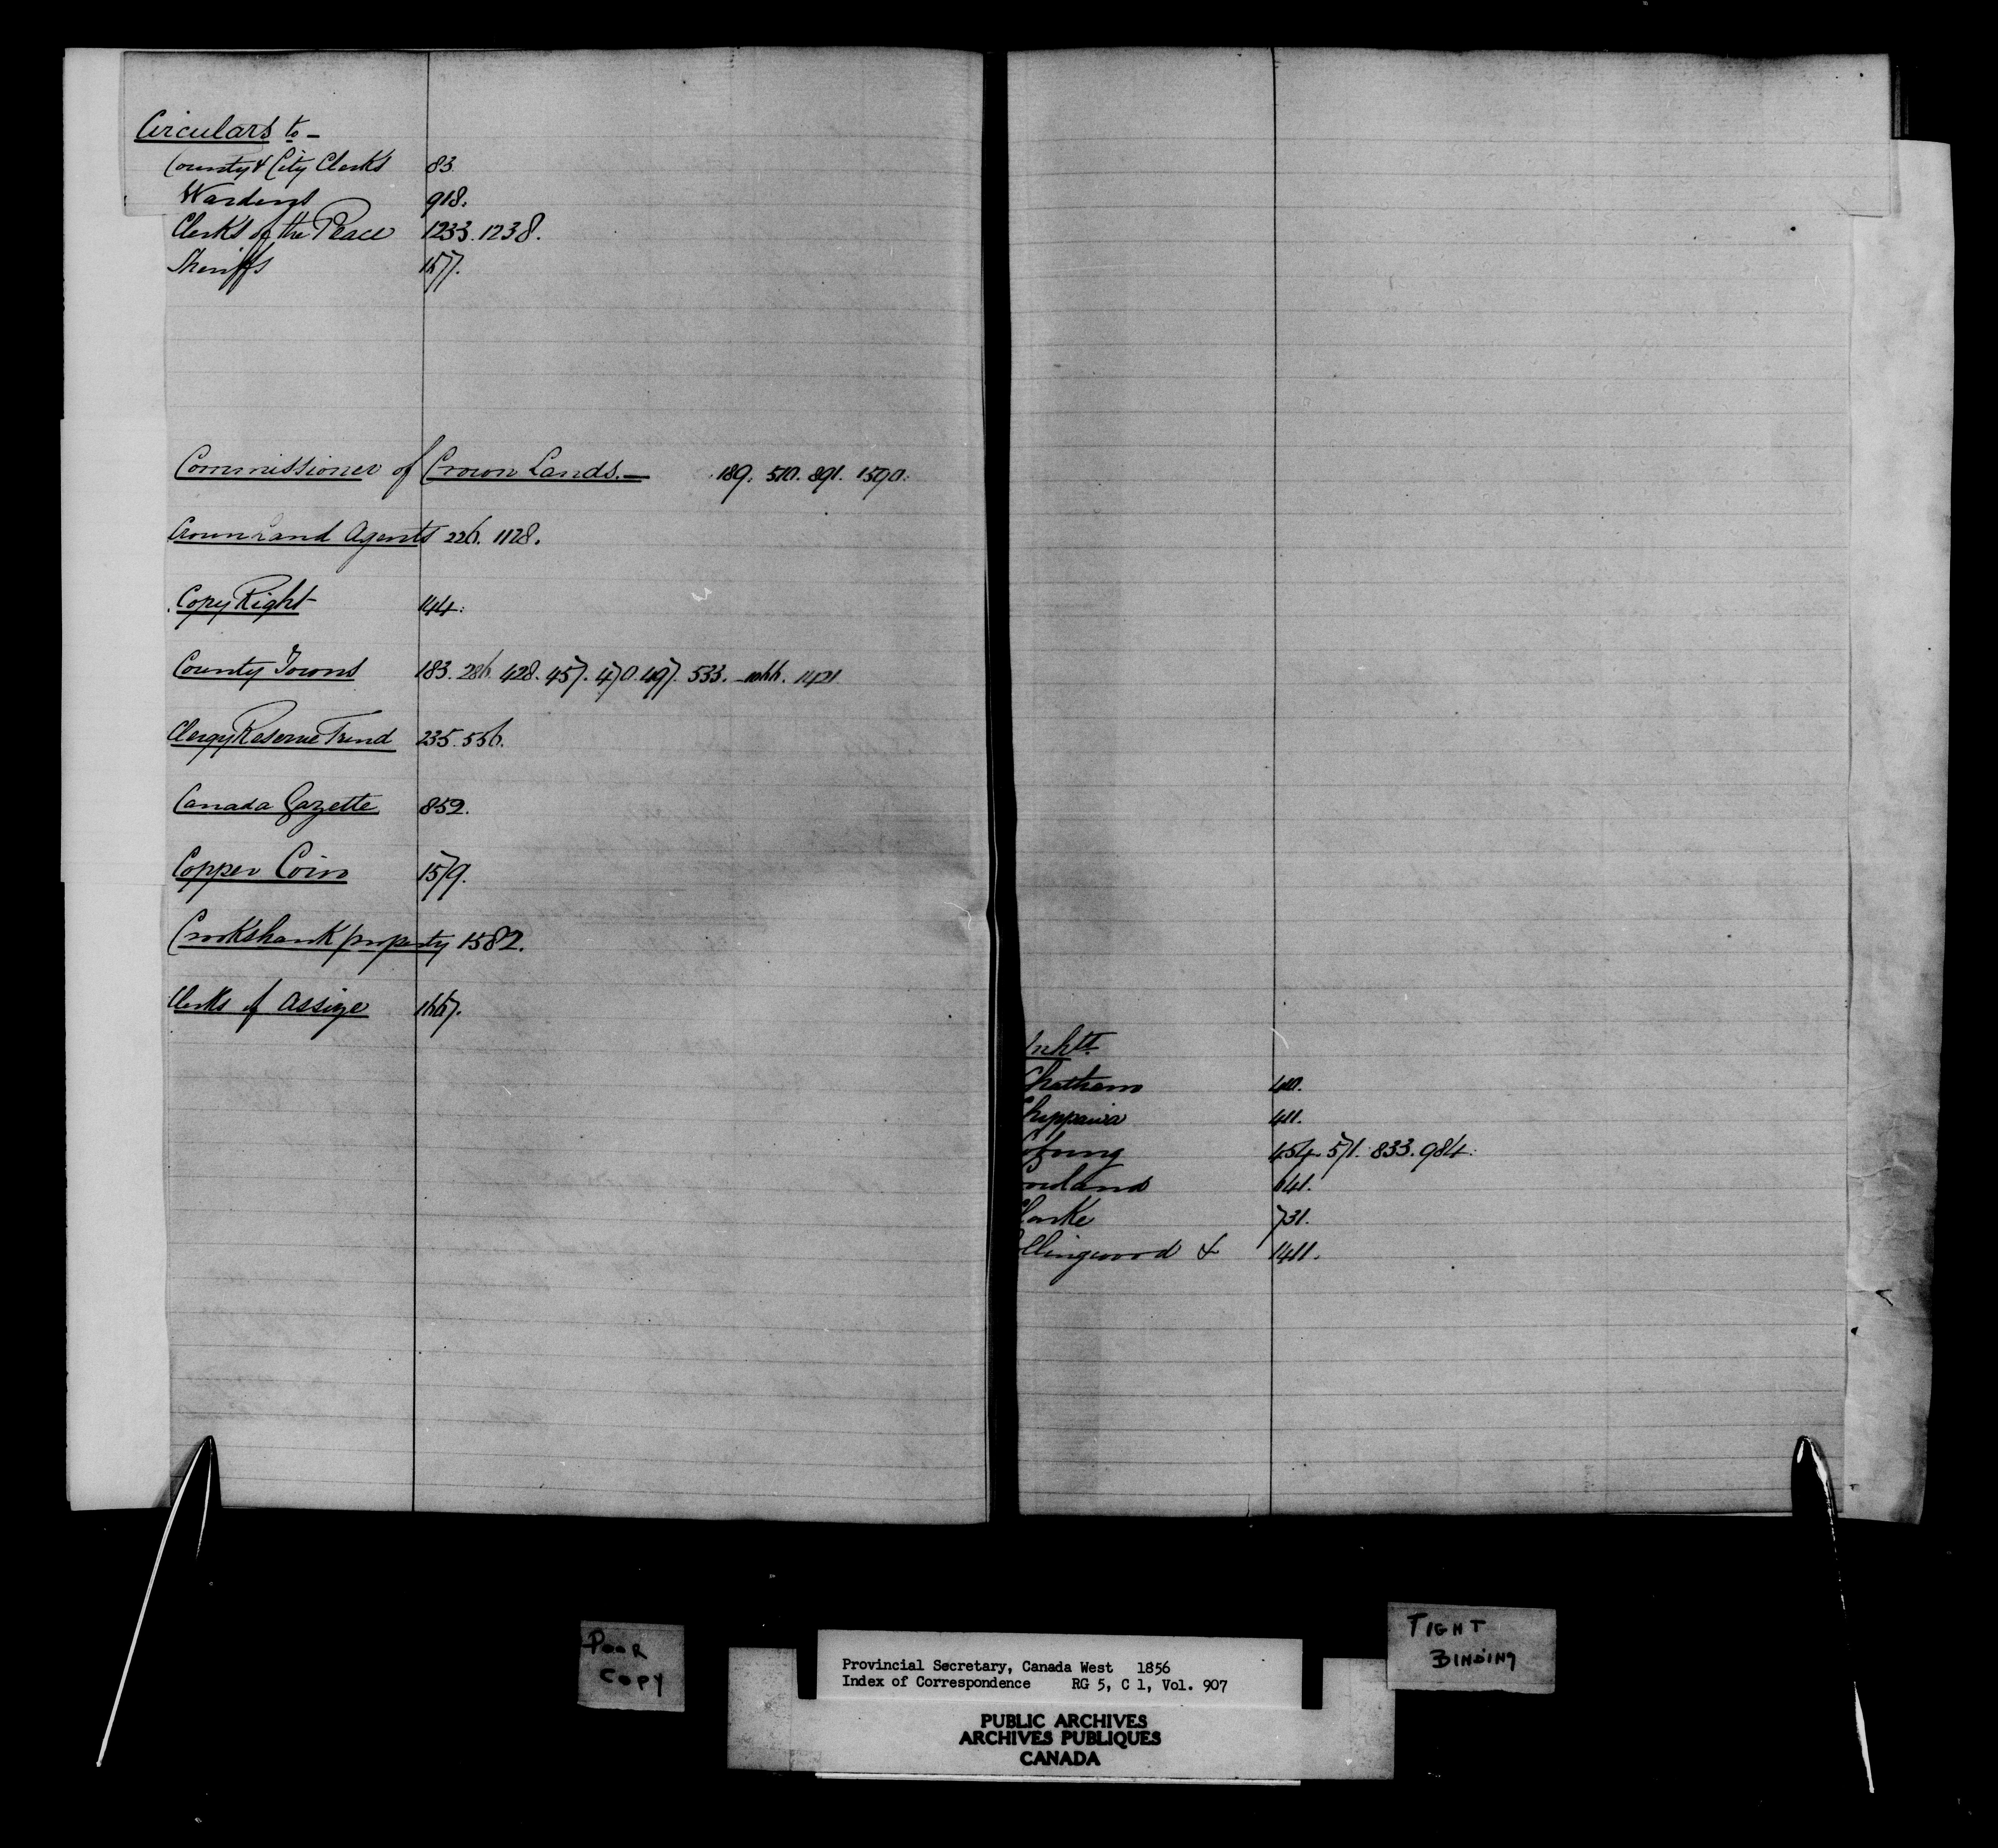 Circulars to –
County & City Clerks 83
Wardens 918.
Clerks of the Peace 1233. 1238.
Sheriffs 1577.
Commissioner of Crown Lands. – 189. 510. 891. 1590.
Crown Land Agents 226. 1128.
Copy Right 144.
County Towns 183. 286. 428. 457. 470. 497. 533. 1421
Clergy Reserve Fund 235. 556.
Canada Gazette 859.
Copper Coin 1579.
Crookshank property 1582.
Clerks of Assize 1667.
Inhts.
Chatham 410.
Chippawa 411.
Cobourg 454. 571. 833. 984.
641.
Clarke 731.
Collingwood & 1411.
POOR
COPY
TIGHT
BINDING
Provincial Secretary, Canada West 1856
Index of Correspondence RG 5, C 1, Vol. 907
PUBLIC ARCHIVES
ARCHIVES PUBLIQUES
CANADA